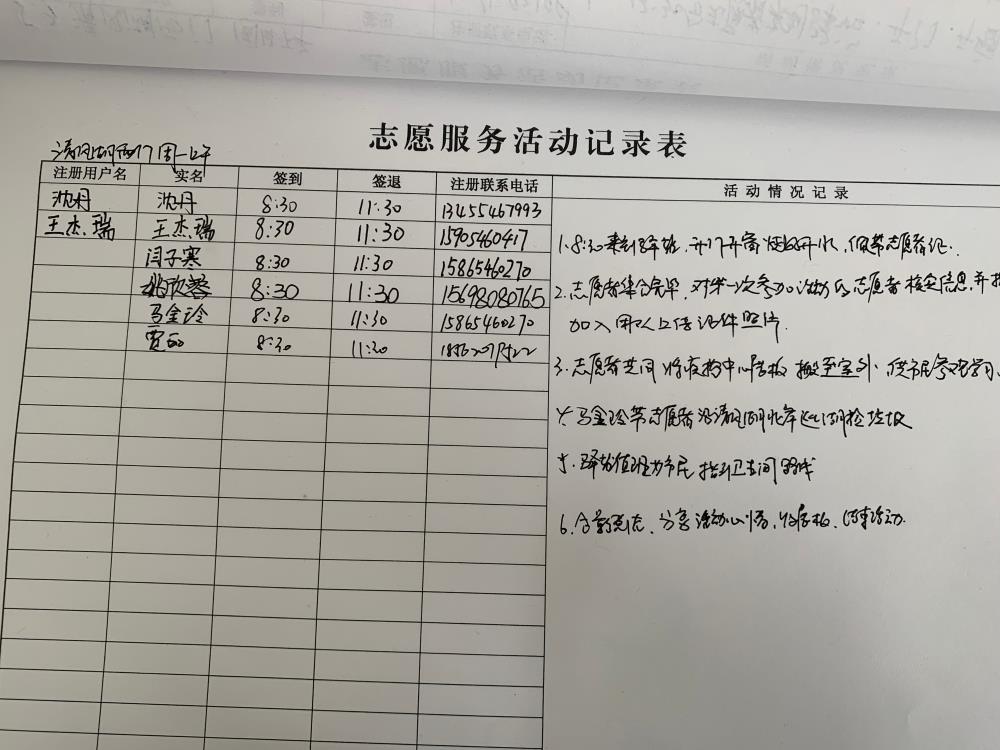 志愿服务活动记录表
清风湖西门 周一上午
注册用户名 实名 签到 签退 注册联系电话 活动情况记录
沈丹 沈丹 8:30 11:30 13455467993
王杰瑞 王杰瑞 8:30 11:30 15905460417
闫子寒 8:30 11:30 15865460270
8:30 11:30 15698080765
马金玲 8:30 11:30 15865460270
贾 8:30 11:30
1. 8:30来到驿站,开门开窗 烧开水,佩带志愿者证.
2. 志愿者集合完毕,对第一次参加活动的志愿者核实信息,并指
加入团队上传证件照片.
3. 志愿者共同将 中心 板搬至室外,供市民参观学习.
4. 马金玲带志愿者沿清风湖北岸巡湖捡垃圾
5. 驿站值班为市民指引卫生间路线
6. 合影 ,分享活动心得,收 板,结束活动.